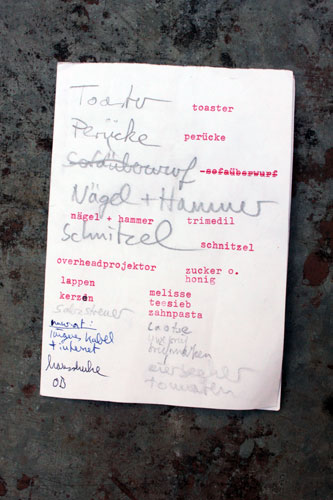 Toaster
toaster
Perücke
perücke
Sofaüberwurf
-sofaüberwurf
Nägel + Hammer
nägel + hammer
trimedil
Schnitzel
schnitzel
overheadprojektor
zucker o.
honig
lappen
melisse
kerzen
teesieb
zahnpasta
Salzstreuer
neurat:
langes kabel
+ internet
hausschuhe
OB
tomaten